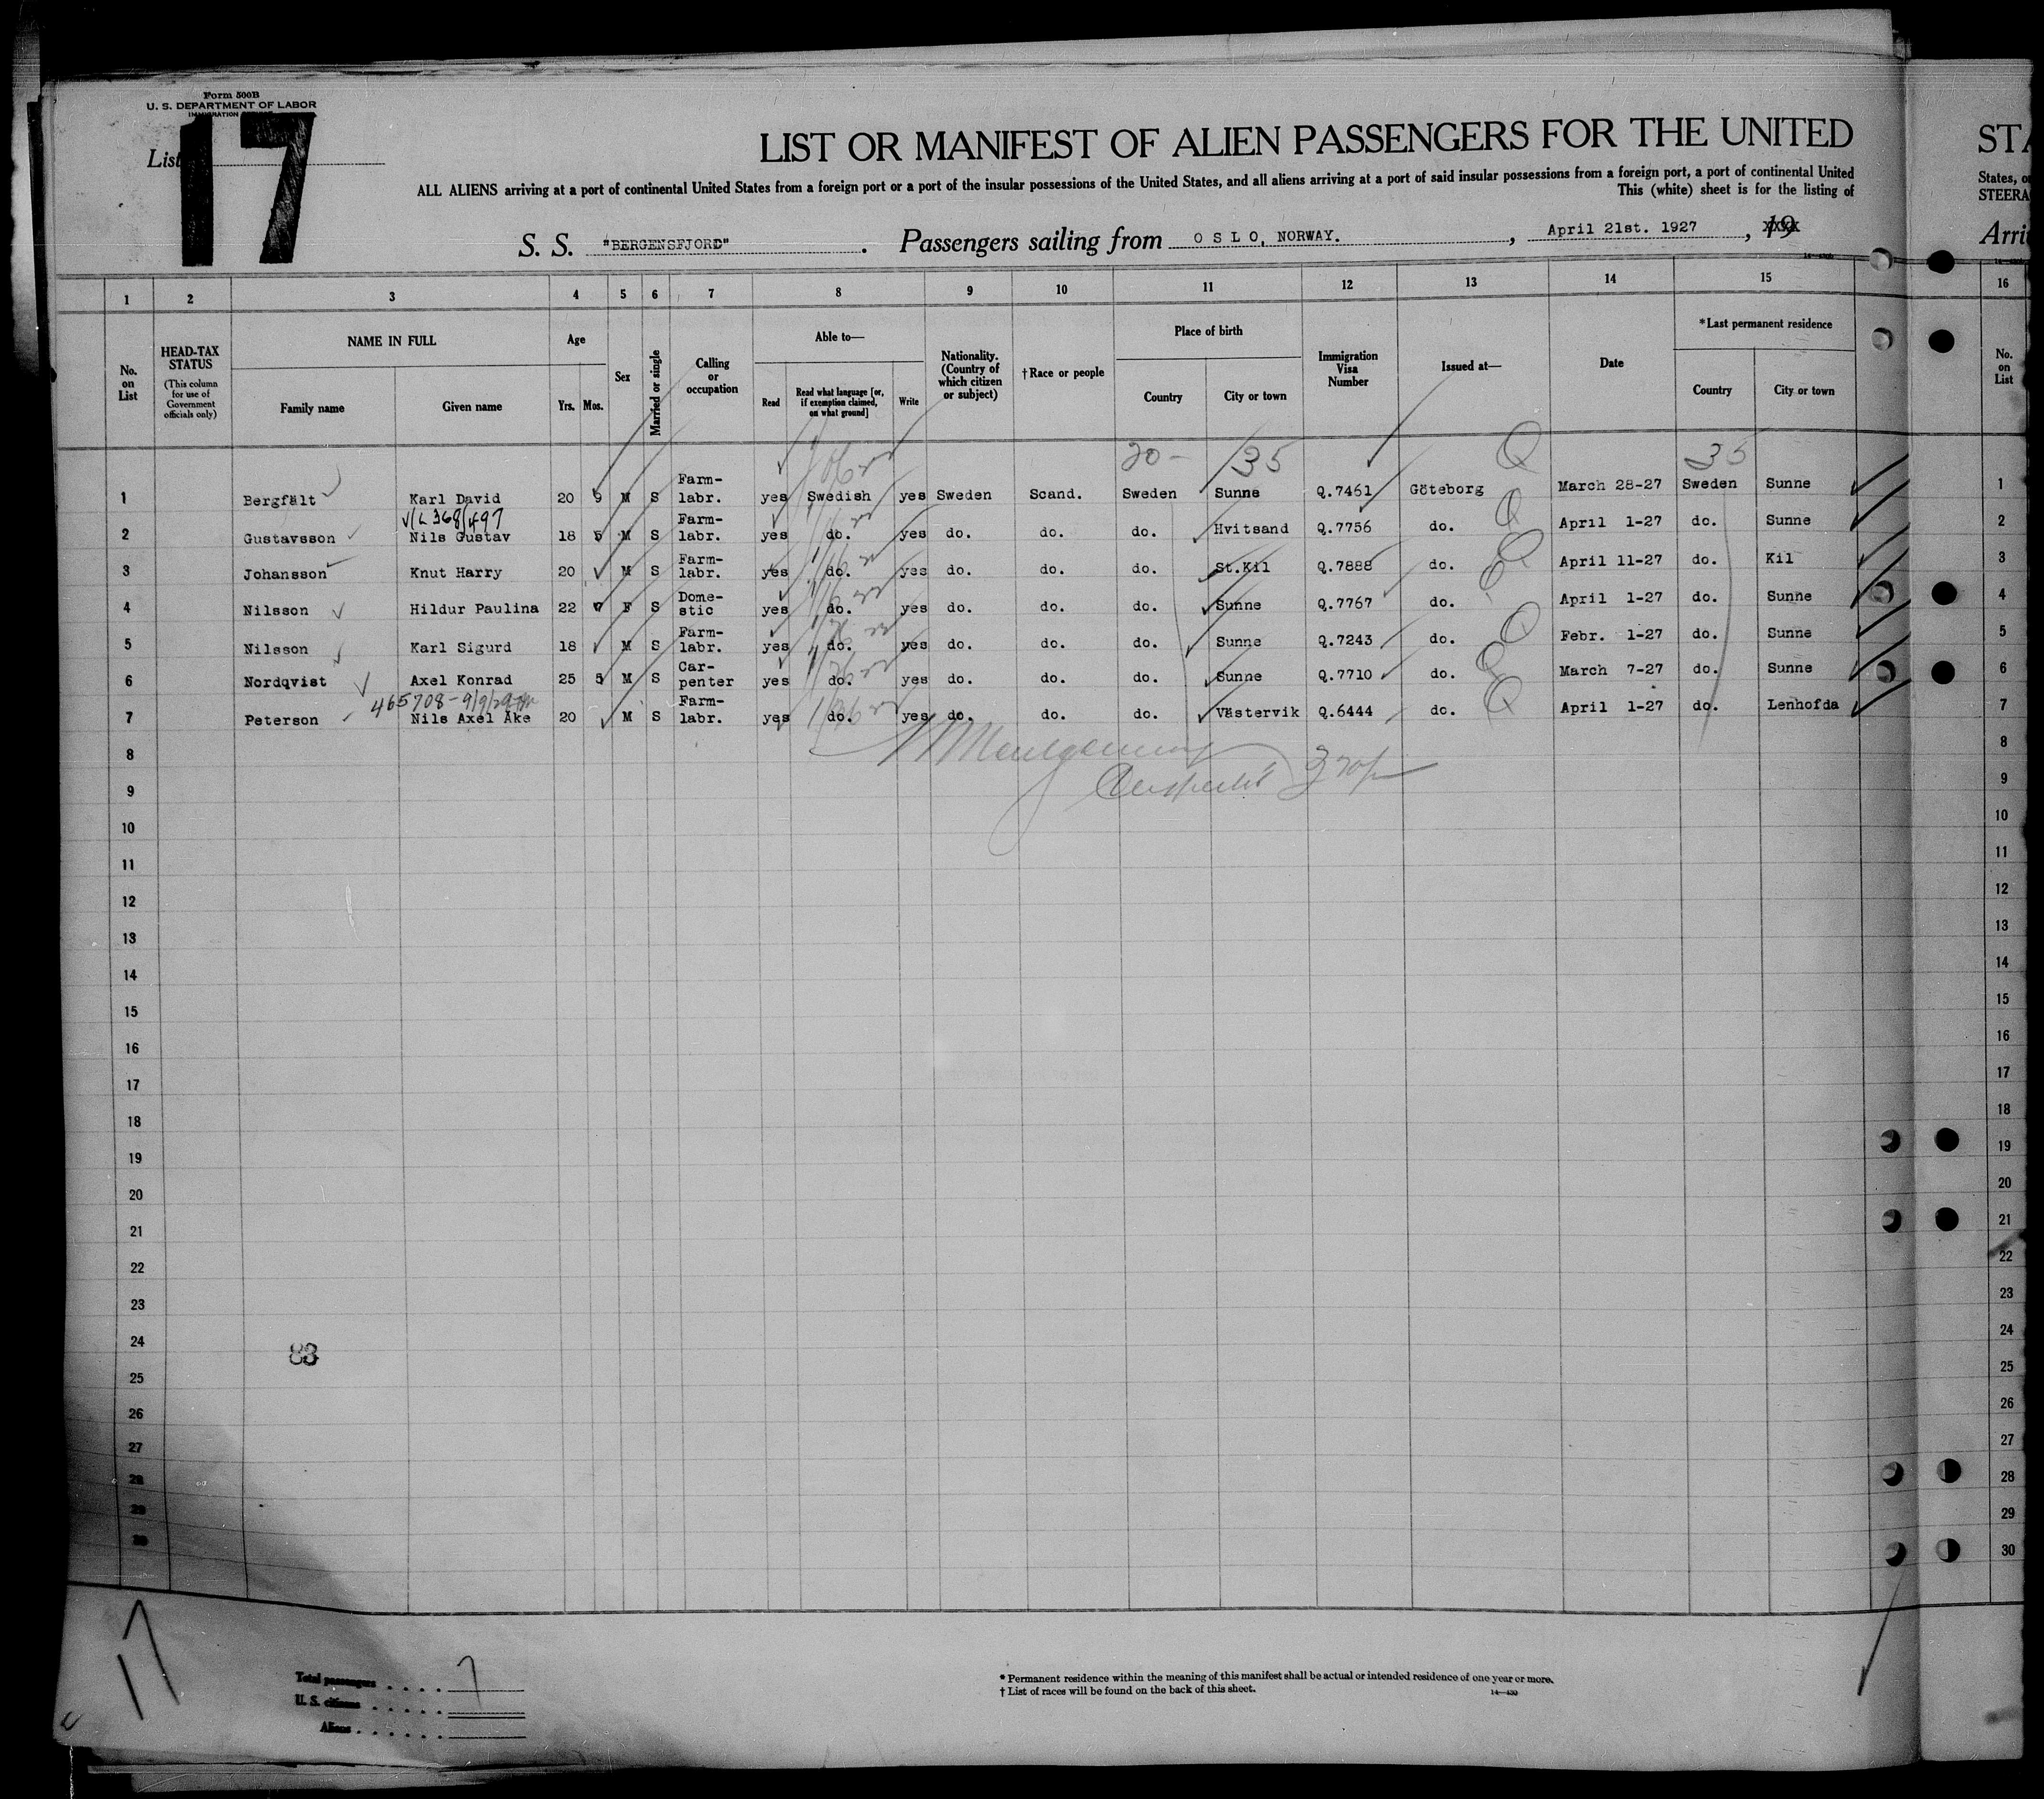 Form 500B
U. S. DEPARTMENT OF LABOR
List 17
LIST OR MANIFEST OF ALIEN PASSENGERS FOR THE UNITED
STA
ALL ALIENS arriving at a port of continental United States from a foreign port or a port of the insular possessions of the United States, and all aliens arriving at a port of said insular possessions from a foreign port, a port of continental United
States, o
This (white) sheet is for the listing of
STEERA
S. S. "BERGENSFJORD". Passengers sailing from O S L O, NORWAY., April 21st. 1927, 19
Arri
1 2 3 4 5 6 7 8 9 10 11 12 13 14 15 16
No. on List
HEAD-TAX STATUS (This column for use of Government officials only)
NAME IN FULL
Family name Given name
Age
Yrs. Mos.
Sex
Married or single
Calling or occupation
Able to—
Read Read what language [or, if exemption claimed, on what ground] Write
Nationality. (Country of which citizen or subject)
†Race or people
Place of birth
Country City or town
Immigration Visa Number
Issued at—
Date
*Last permanent residence
Country City or town
No. on List
20- 35 Q 35
1 Bergfält Karl David 20 9 M S Farm-labr. yes Swedish yes Sweden Scand. Sweden Sunne Q.7461 Göteborg March 28-27 Sweden Sunne 1
V/L 368/497
2 Gustavsson Nils Gustav 18 5 M S Farm-labr. yes do. yes do. do. do. Hvitsand Q.7756 do. April 1-27 do. Sunne 2
3 Johansson Knut Harry 20 M S Farm-labr. yes do. yes do. do. do. St.Kil Q.7888 do. April 11-27 do. Kil 3
4 Nilsson Hildur Paulina 22 F S Dome-stic yes do. yes do. do. do. Sunne Q.7767 do. April 1-27 do. Sunne 4
5 Nilsson Karl Sigurd 18 M S Farm-labr. yes do. yes do. do. do. Sunne Q.7243 do. Febr. 1-27 do. Sunne 5
6 Nordqvist Axel Konrad 25 5 M S Car-penter yes do. yes do. do. do. Sunne Q.7710 do. March 7-27 do. Sunne 6
465708-9/9/29
7 Peterson Nils Axel Åke 20 M S Farm-labr. yes do. yes do. do. do. Västervik Q.6444 do. April 1-27 do. Lenhofda 7
8 8
9 9
10 10
11 11
12 12
13 13
14 14
15 15
16 16
17 17
18 18
19 19
20 20
21 21
22 22
23 23
24 24
83
25 25
26 26
27 27
28 28
29 29
30 30
17
Total passengers . . . . 7
U. S. citizens . . . . .
Aliens . . . . . .
* Permanent residence within the meaning of this manifest shall be actual or intended residence of one year or more.
† List of races will be found on the back of this sheet.
14—430